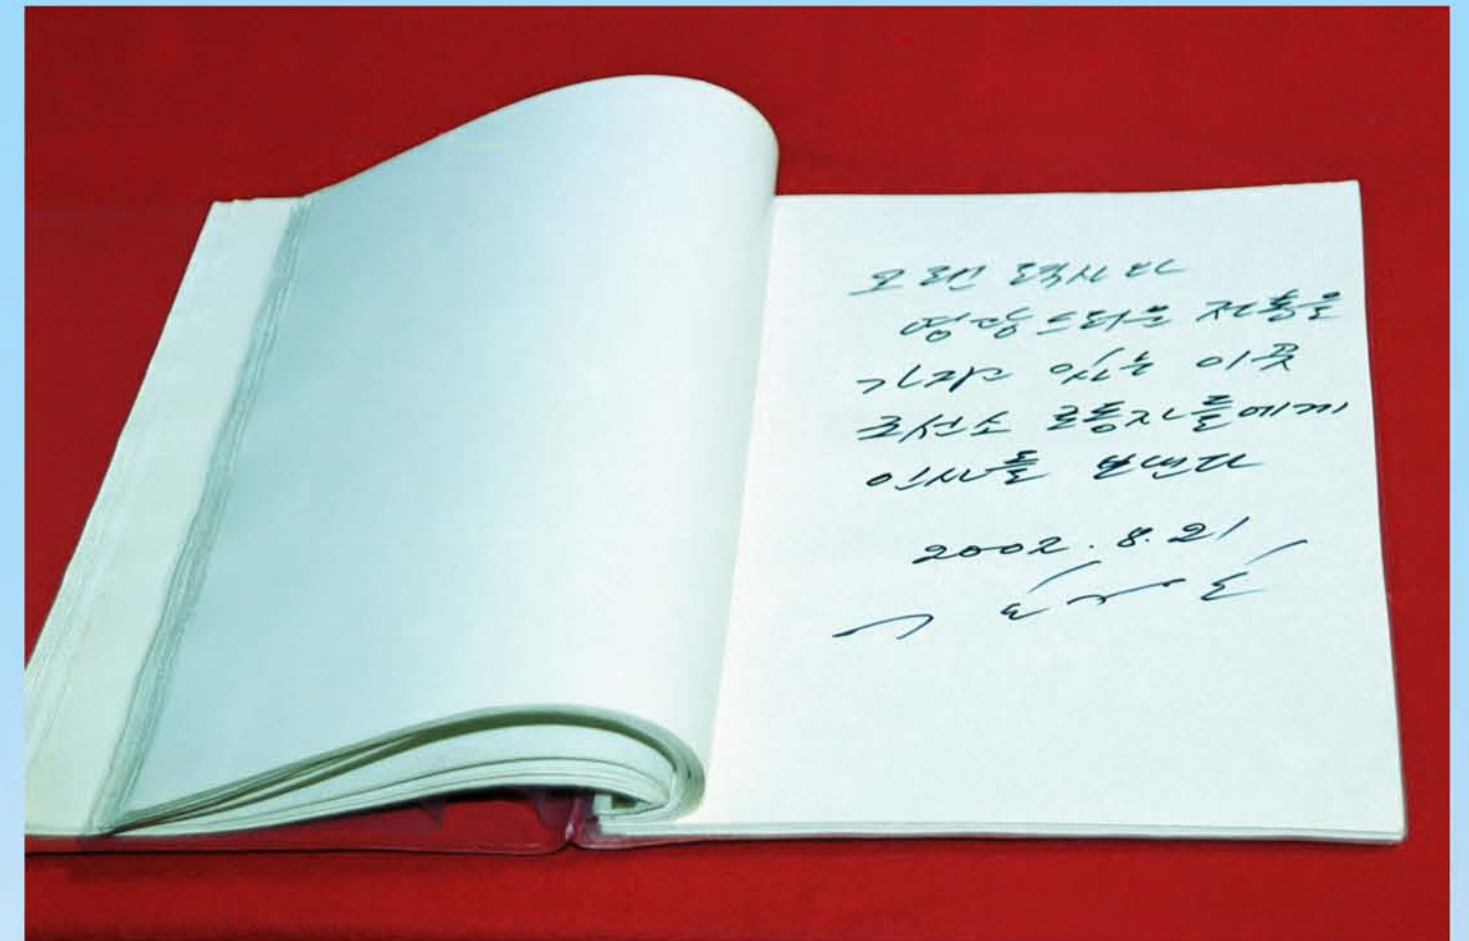 오랜 력사와
영광스러운 전통을
가지고 있는 이곳
조선소 로동자들에게
인사를 보낸다
2002.8.21
김정일